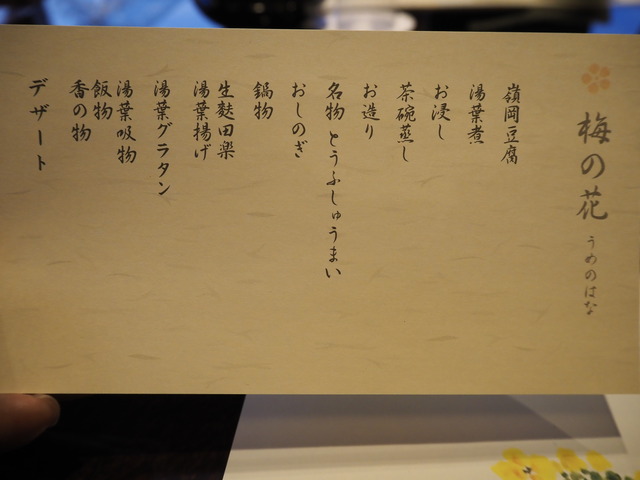 梅の花 うめのはな
嶺岡豆腐
湯葉煮
お浸し
茶碗蒸し
お造り
名物 とうふしゅうまい
おしのぎ
鍋物
生麩田楽
湯葉揚げ
湯葉グラタン
湯葉吸物
飯物
香の物
デザート